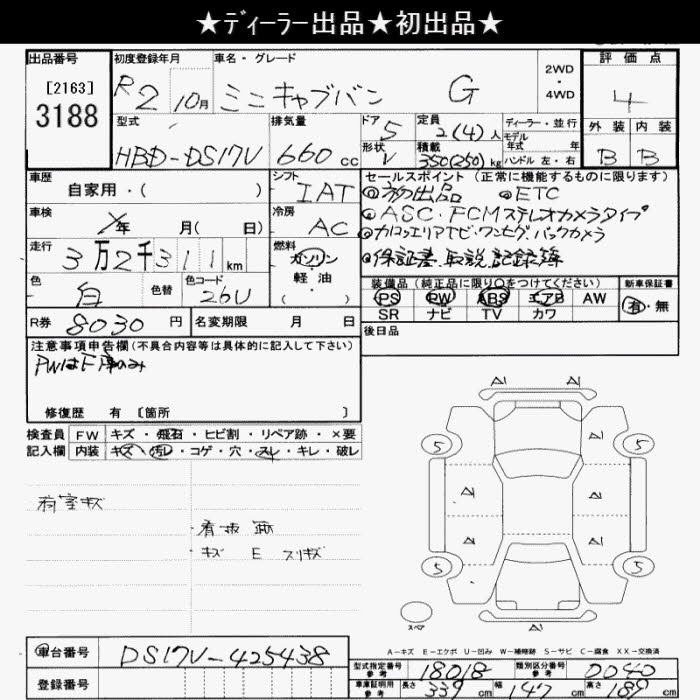 ★ディーラー出品★初出品★
出品番号
[2163]
3188
初度登録年月
R2 10月
車名・グレード
ミニキャブバン G
2WD
・
4WD
評価点
4
型式
HBD-DS17V
排気量
660 cc
ドア 5
形状 V
定員
2(4)人
積載
350(250)kg
ディーラー・並行
モデル
年式 年
ハンドル 左・右
外装 内装
B B
車歴
自家用・( )
シフト
IAT
セールスポイント(正常に機能するものに限ります)
◎初出品 ◎ETC
◎ASC・FCMステレオカメラタイプ
◎カロッツェリアTV・ワンセグ、バックカメラ
◎保証書、取説、記録簿
車検
年 月( 日)
冷房
AC
走行
3万2千311km
燃料
ガソリン
軽・油
・( )
色
白
色替
色コード
26U
装備品(純正品に限り○をつけてください)
PS PW ABS エアB AW
SR ナビ TV カワ
新車保証書
有・無
R券 8030円
名変期限 月 日
後日品
注意事項申告欄(不具合内容等は具体的に記入して下さい)
PWはF席のみ
修復歴 有 [箇所 ]
検査員
記入欄
FW キズ・飛石・ヒビ割・リペア跡・×要
内装 キズ・汚レ・コゲ・穴・スレ・キレ・破レ
荷室キズ
キズ E スリキズ
A1 A1
A1
5 5
A1 A1
A1 A1
5 5
スペア
A1
A-キズ E-エクボ U-凹み W-補修跡 S-サビ C-腐食 XX-交換済
車台番号 DS17V-425438
登録番号
型式指定番号
参考
18018
類別区分番号
参考
0040
車庫証明用
参考
長さ 339cm 幅 147cm 高さ 189cm